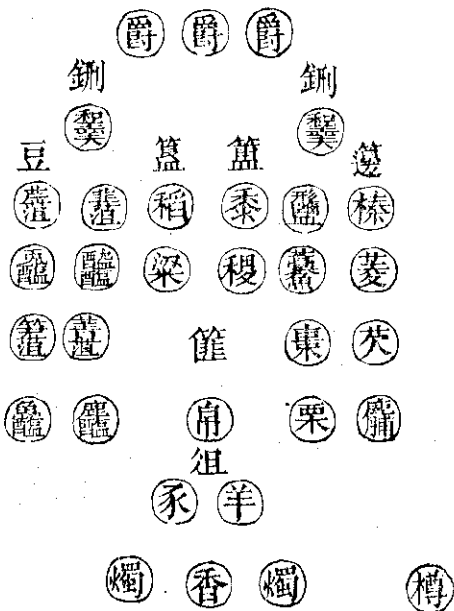 爵 爵 爵
鉶 鉶
和羹 和羹
豆 簋 簠 籩
芹菹 韭菹 稻 黍 形鹽 榛
兔醢 醓醢 粱 稷 菱
筍菹 菁菹 篚 棗 芡
魚醢 鹿醢 帛 栗 鹿脯
俎
豕 羊
燭 香 燭 樽